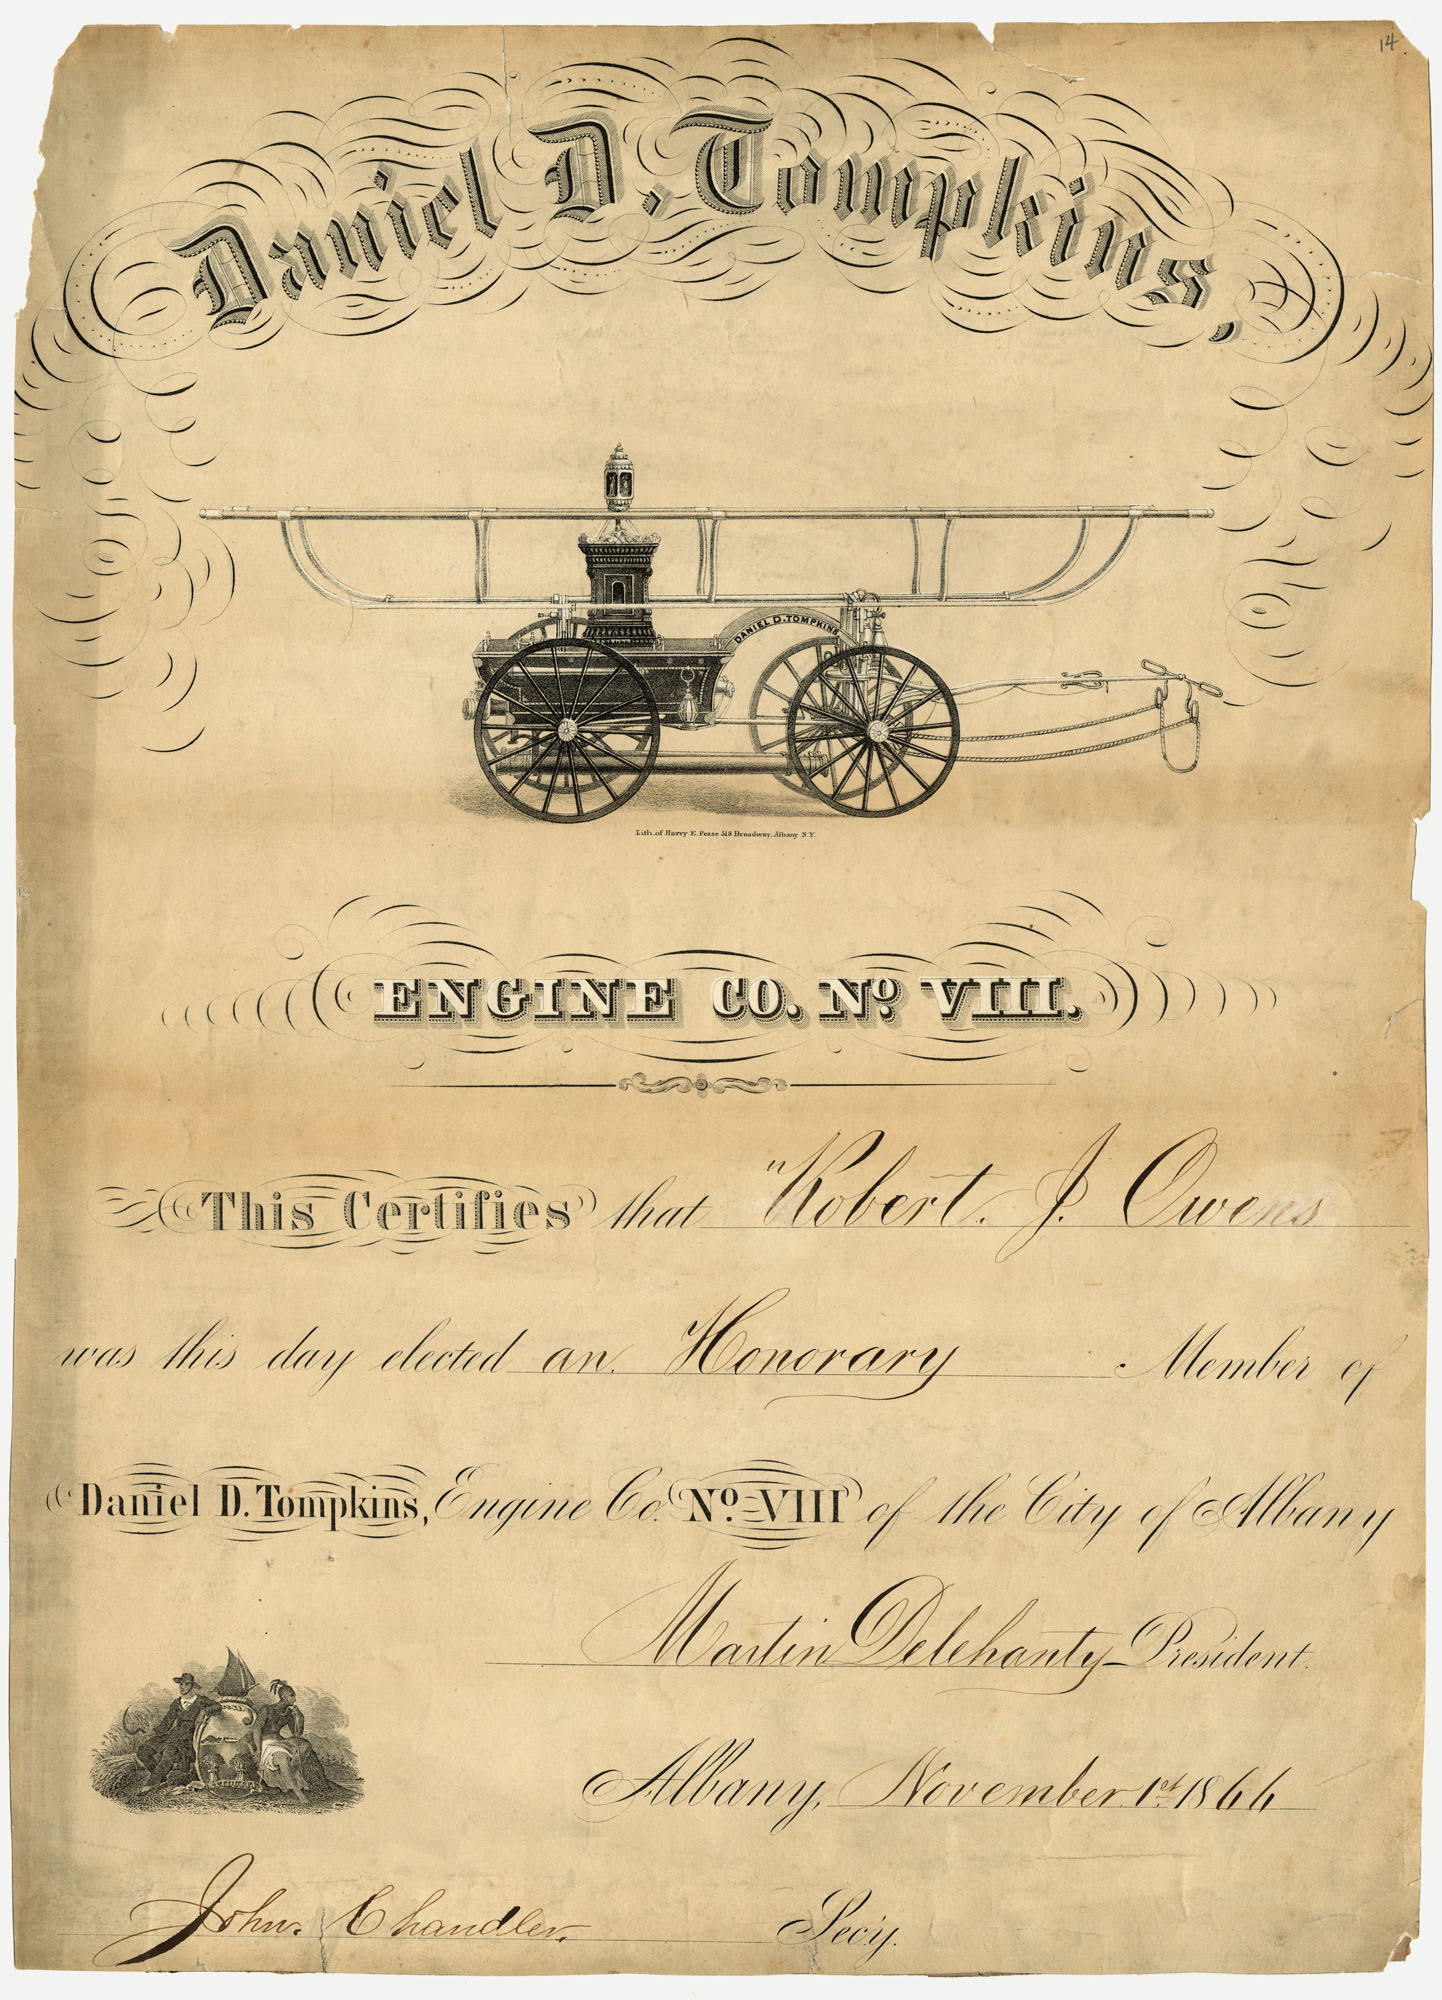 14
Daniel D. Tompkins,
DANIEL D. TOMPKINS
Lith. of Harry E. Pease 518 Broadway, Albany N.Y.
ENGINE CO. No. VIII.
This Certifies that "Robert. J. Owens
was this day elected an Honorary Member of
Daniel D. Tompkins, Engine Co. No. VIII of the City of Albany
Martin Delehanty President.
Albany, November 1st 1866
John. Chandler. Secy.